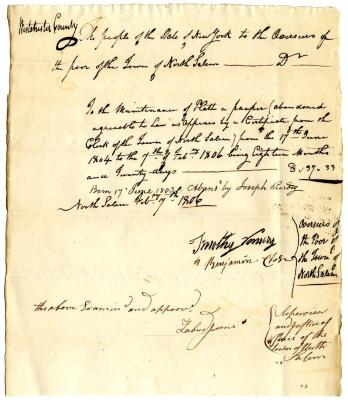 Westchester County
The People of the State of New York to the Overseers of
the poor of the Town of North Salem — Dr
To the Maintenance of Platt a pauper (abandoned
agreeable to Law as appears by a Certificate from the
Clerk of the Town of North Salem) from the 17th June
1804 to the 7th of Feby 1806 being Eighteen Months
and Twenty days — $ 97-33
Born 17th June 1803 by Joseph
North Salem Feby 7th 1806
Timothy
Benjamin Close
Overseers of
the Poor of
the Town of
North Salem
the above Examined and approved
Supervisor
and Justice of
Peace of the
Town of North
Salem